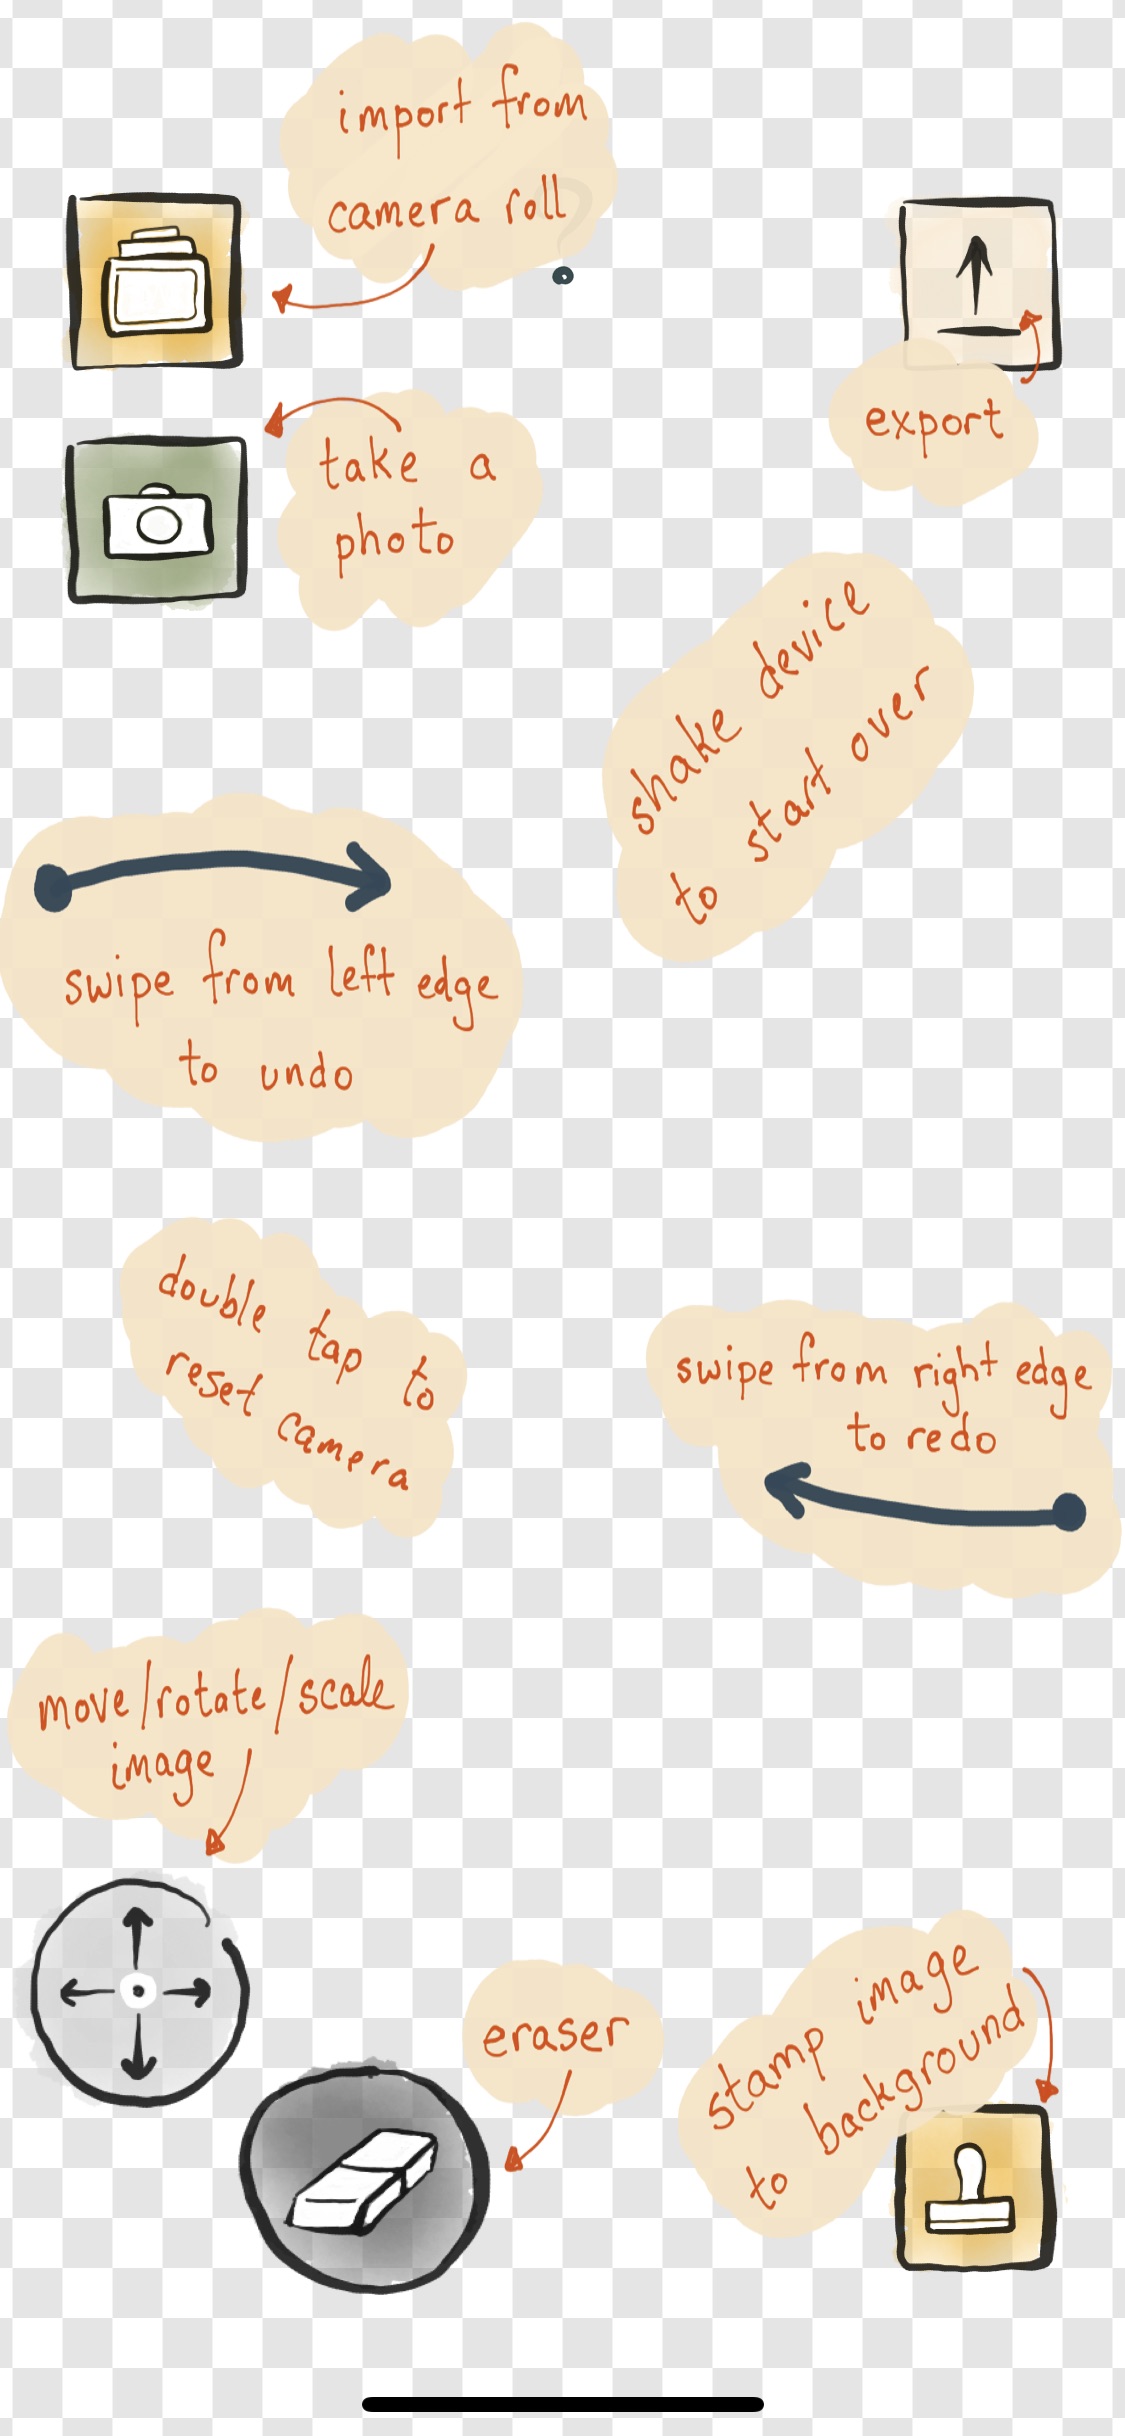 import from
camera roll
?
export
take a
photo
shake device
to start over
swipe from left edge
to undo
double tap to
reset camera
swipe from right edge
to redo
move/rotate/scale
image
eraser
stamp image
to background